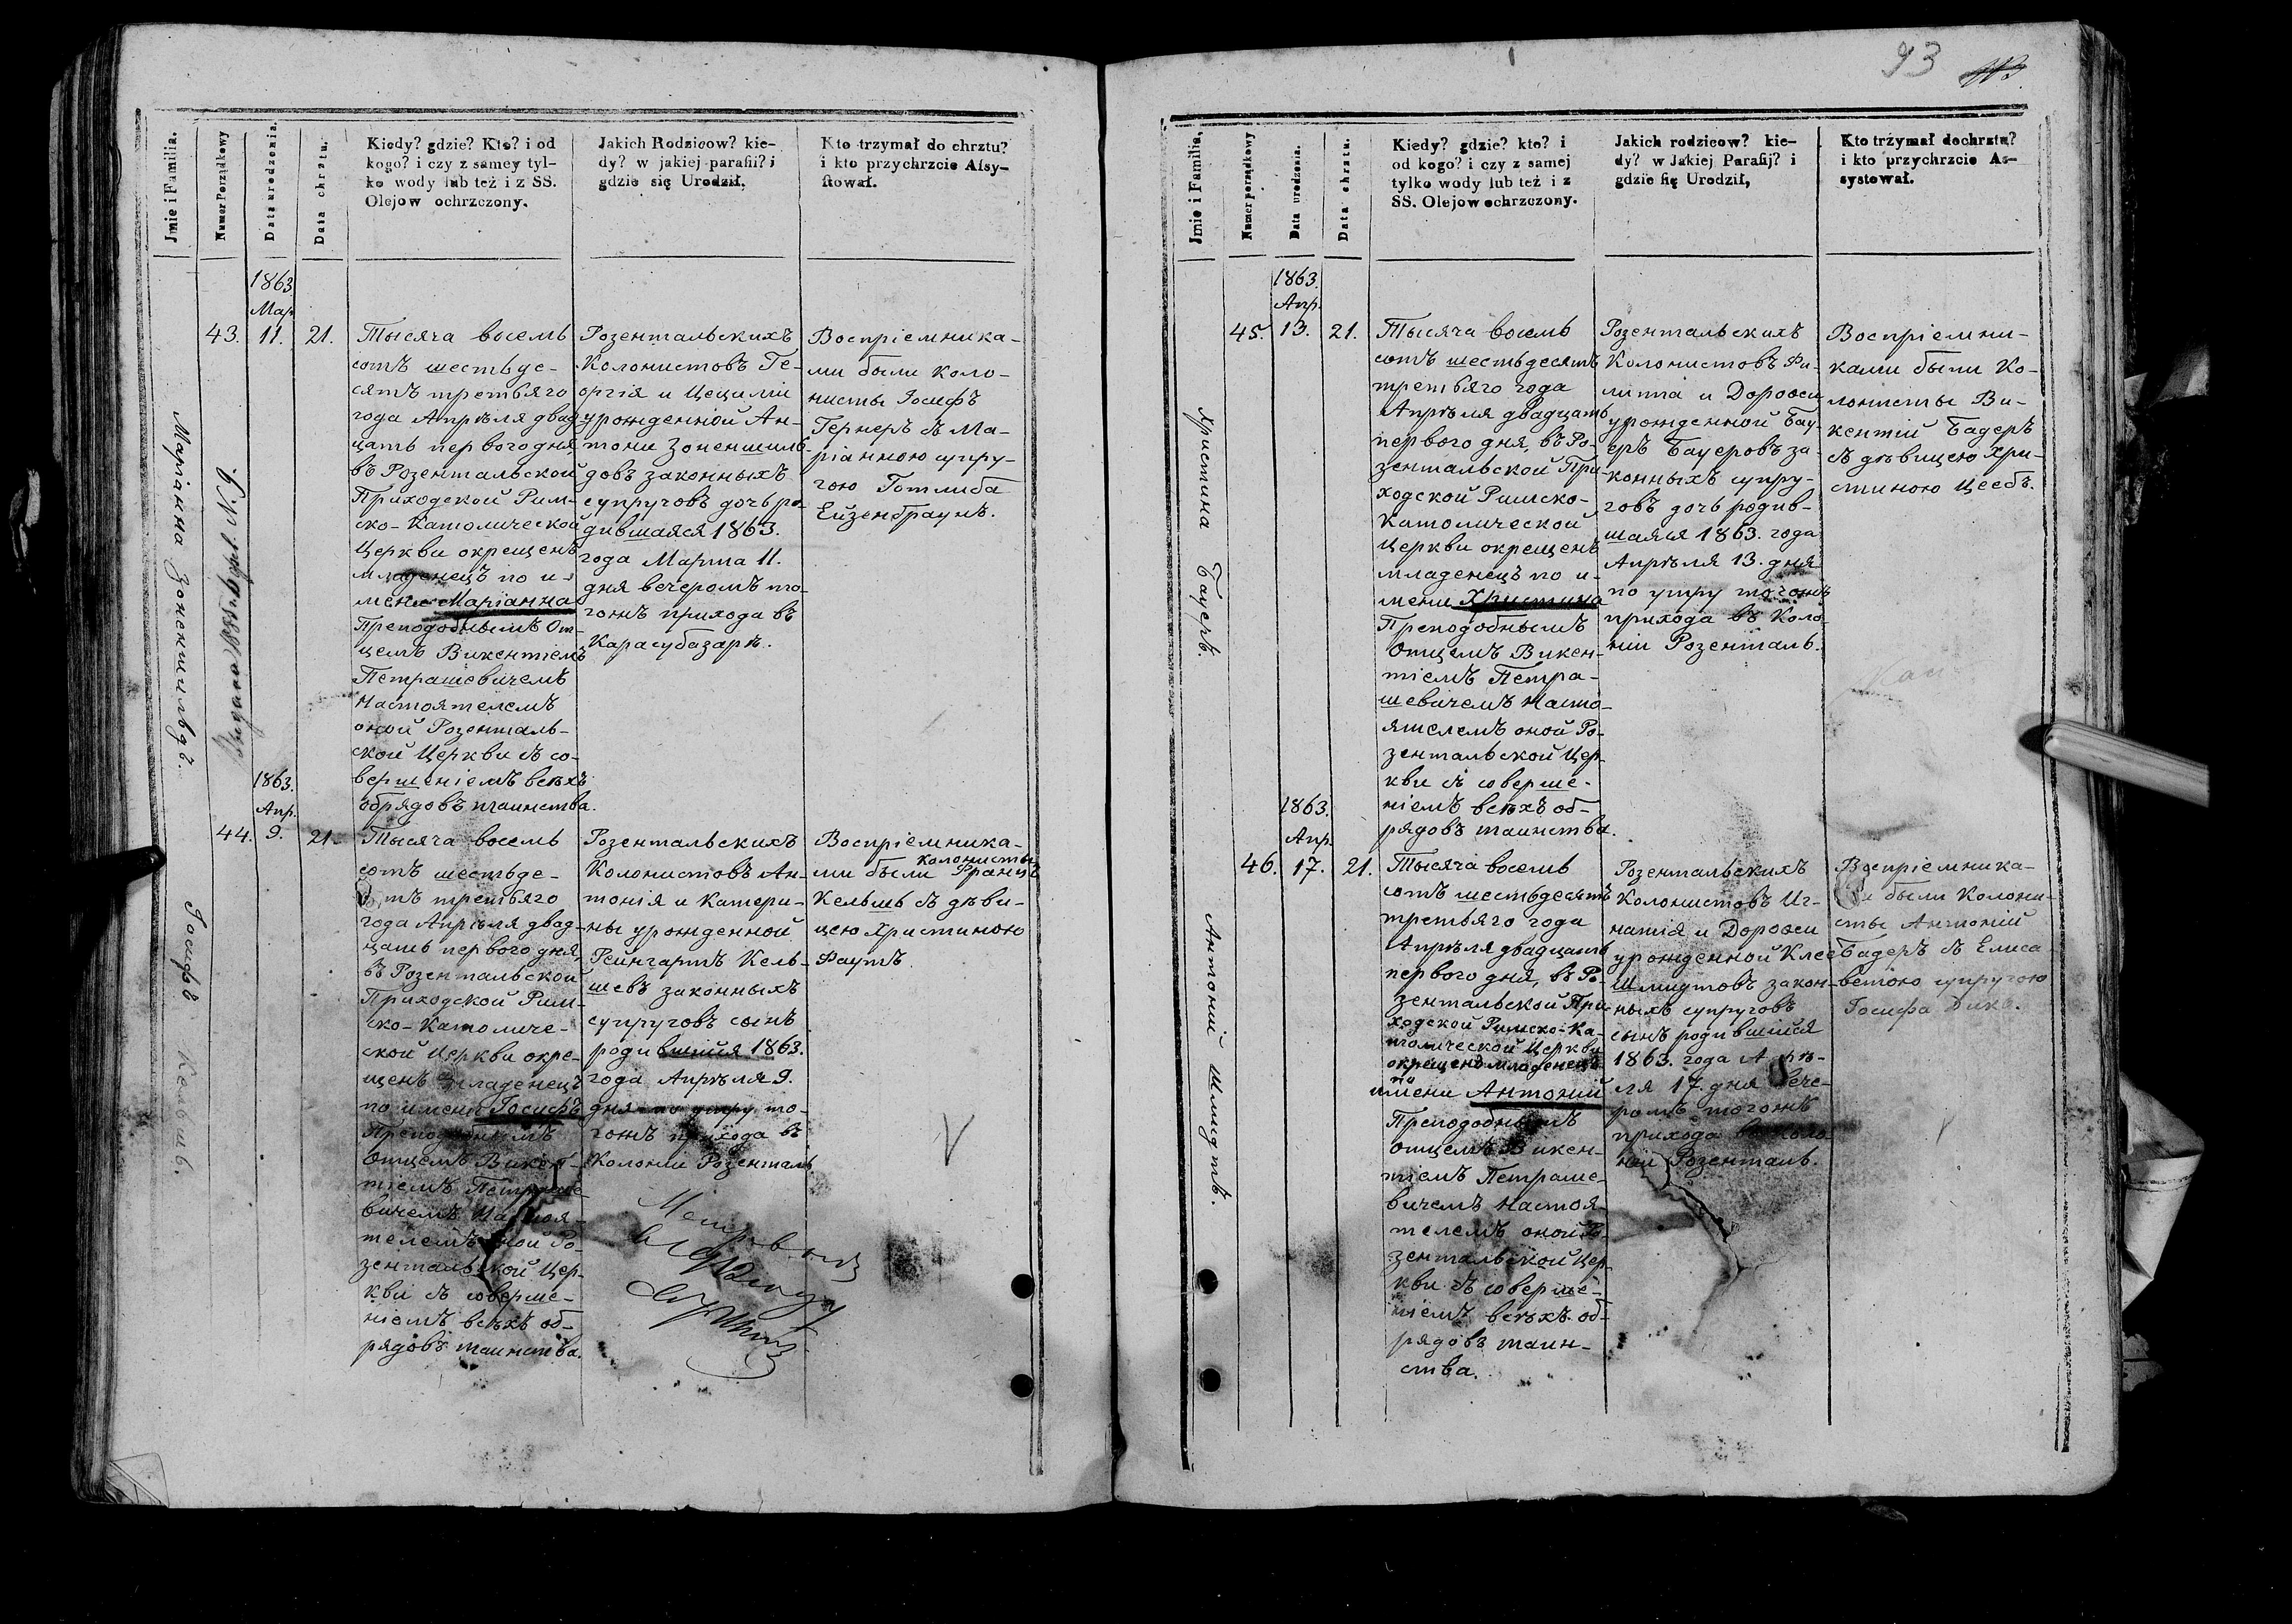 Jmie i Familia.
Numer Porządkowy
Data urodzenia.
Data chrztu.
Kiedy? gdzie? Kto? i od
kogo? i czy z samey tyl-
ko wody lub też i z SS.
Olejow ochrzczony.
Jakich Rodzicow? kie-
dy? w jakiej parafii? i
gdzie się Urodził.
Kto trzymał do chrztu?
i kto przychrzcie Afsy-
ftował.
Маріанна Зоненшильдъ.
1863
Мар
43. 11. 21.
Тысяча восемь
сотъ шестьде-
сятъ третьяго
года Апрѣля двад-
цать перваго дня,
въ Розентальской
Приходской Рим-
ско-Католической
Церкви окрещенъ
младенецъ по и-
мени Маріанна
Преподобнымъ От-
цемъ Викентіемъ
Петрашевичемъ
Настоятелемъ
оной Розенталь-
ской Церкви съ со-
вершеніемъ всѣхъ
обрядовъ таинства.
Розентальскихъ
Колонистовъ Ге-
оргія и Цециліи
урожденной Ан-
тони Зоненшиль-
довъ законныхъ
супруговъ дочь ро-
дившаяся 1863.
года Марта 11.
дня вечеромъ то-
гожъ прихода въ
Карасубазарѣ.
Воспріемника-
ми были коло-
нисты Іосифъ
Гернеръ съ Ма-
ріанною супру-
гою Готлиба
Ейзенбраунъ.
Іосифъ Кельшъ.
1863.
Апр.
44. 9. 21.
Тысяча восемь
сотъ шестьде-
тъ третьяго
года Апрѣля двад-
цать перваго дня,
въ Розентальской
Приходской Рим-
ско-Католиче-
ской Церкви окре-
щенъ младенецъ
по имени Іосифъ
Преподобнымъ
Отцемъ Викен-
тіемъ Петраше-
вичемъ Настоя-
телемъ оной Ро-
зентальской Цер-
кви съ соверше-
ніемъ всѣхъ об-
рядовъ таинства.
Розентальскихъ
Колонистовъ Ан-
тонія и Катери-
ны урожденной
Рейнгартъ Кель-
шевъ законныхъ
супруговъ сынъ
родившійся 1863.
года Апрѣля 9.
дня по утру то-
гожъ прихода въ
Колоніи Розенталь.
Воспріемника-
колонисты
ми были Францъ
Кельшъ съ дѣви-
цею Христиною
Фаутъ.
93
Jmie i Familia.
Numer porządkowy
Data urodzenia.
Data chrztu.
Kiedy? gdzie? kto? i
od kogo? i czy z samej
tylko wody lub też i z
SS. Olejow ochrzczony.
Jakich rodzicow? kie-
dy? w Jakiej Parafij? i
gdzie fię Urodził,
Kto trzymał dochrztu?
i kto przychrzcie As-
systował.
Христина Бауеръ.
1863.
Апр.
45. 13. 21.
Тысяча восемь
сотъ шестьдесятъ
третьяго года
Апрѣля двадцать
перваго дня, въ Ро-
зентальской При-
ходской Римско-
Католической
Церкви окрещенъ
младенецъ по и-
мени Христина
Преподобнымъ
Отцемъ Викен-
тіемъ Петра-
шевичемъ Насто-
ятелемъ оной Ро-
зентальской Цер-
кви съ соверше-
ніемъ всѣхъ об-
рядовъ таинства.
Розентальскихъ
Колонистовъ Фи-
липпа и Дорофеи
урожденной Бау-
еръ Бауеровъ за-
конныхъ супру-
говъ дочь родив-
шаяся 1863. года
Апрѣля 13. дня
по утру тогожъ
прихода въ Коло-
ніи Розенталь.
Воспріемни-
ками были Ко-
лонисты Ви-
кентій Бадеръ
съ дѣвицею Хри-
стиною Цеебъ.
Антоній Шмидтъ.
1863.
Апр.
46. 17. 21.
Тысяча восемь
сотъ шестьдесятъ
третьяго года
Апрѣля двадцать
перваго дня, въ Ро-
зентальской При-
ходской Римско-Ка-
толической Церкви
окрещенъ младенецъ
по
имени Антоній
Преподобнымъ
Отцемъ Викен-
тіемъ Петраше-
вичемъ Настоя-
телемъ оной Ро-
зентальской Цер-
кви съ соверше-
ніемъ всѣхъ об-
рядовъ таин-
ства.
Розентальскихъ
Колонистовъ Иг-
натія и Дорофеи
урожденной Клее
Шмидтовъ закон-
ныхъ супруговъ
сынъ родившійся
1863. года Апрѣ-
ля 17. дня вече-
ромъ тогожъ
прихода въ Коло-
ніи Розенталь.
Воспріемника-
ми были Колони-
сты Антоній
Бадеръ съ Елиса-
ветою супругою
Іосифа Дикъ.